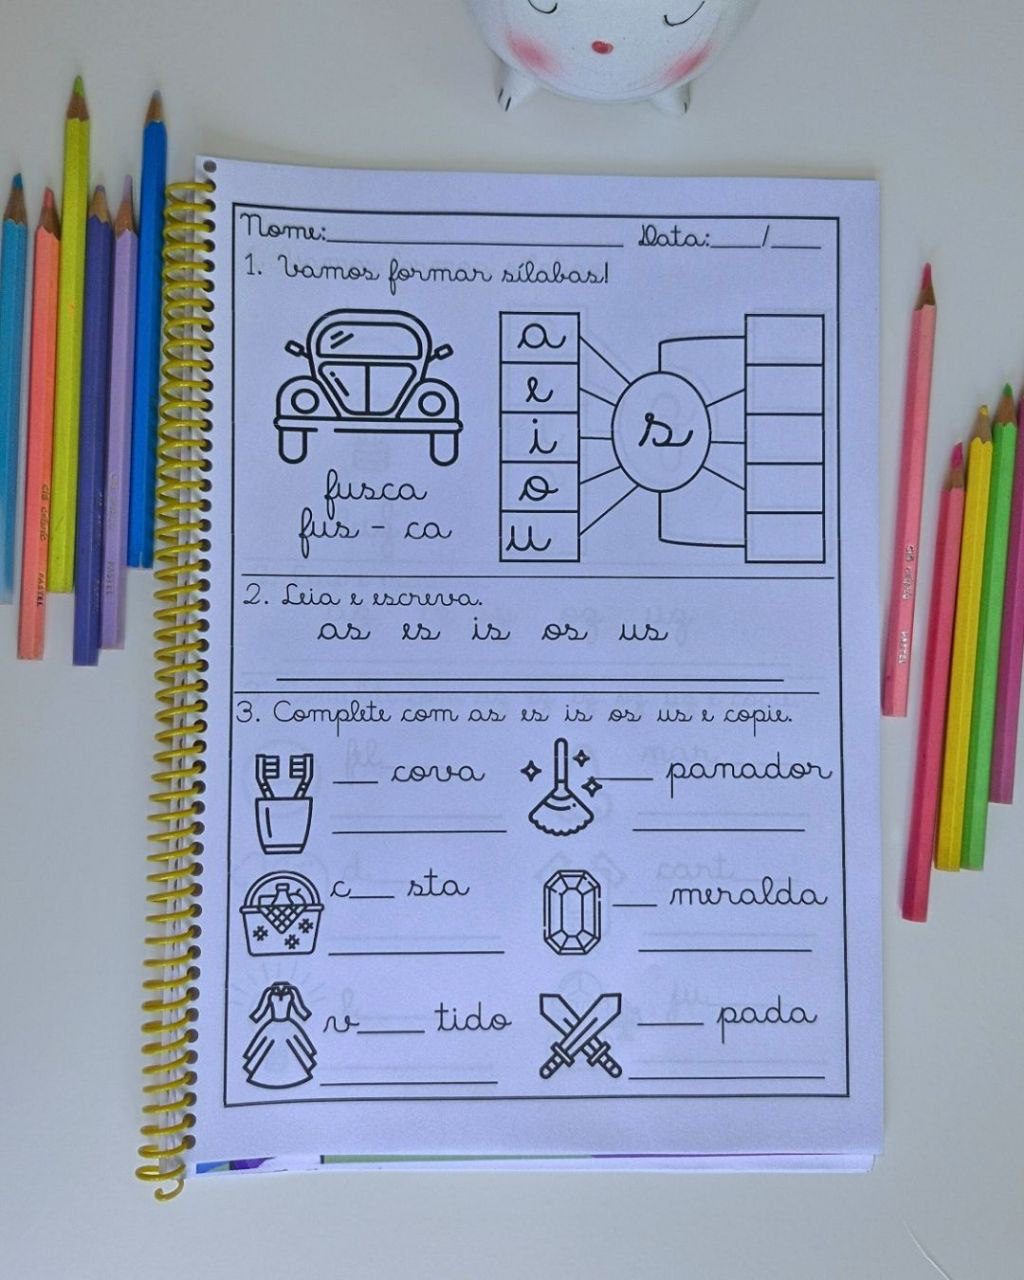 Nome:__________ Data:___/___
1. Vamos formar sílabas!
a
e
i
o
u
s
fusca
fus - ca
2. Leia e escreva.
as es is os us
3. Complete com as es is os us e copie.
___ cova
___ panador
c___ sta
___ meralda
v___ tido
___ pada